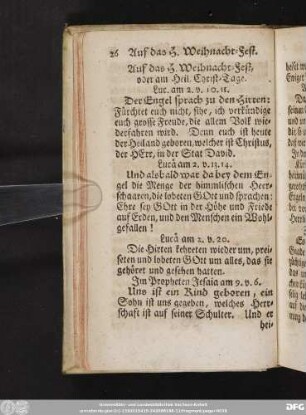 26 Auf das H. Weihnacht-Fest.
Auf das H. Weihnacht-Fest,
oder am Heil. Christ-Tage.
Luc. am 2. v. 10. 11.
Der Engel sprach zu den Hirten:
Fürchtet euch nicht, sihe, ich verkündige
euch grosse Freude, die allem Volk wie-
derfahren wird. Denn euch ist heute
der Heiland geboren, welcher ist Christus,
der HErr, in der Stat David.
Lucä am 2. v. 13. 14.
Und alsbald war da bey dem En-
gel die Menge der himmlischen Heer-
schaaren, die lobeten GOtt und sprachen:
Ehre sey GOtt in der Höhe und Friede
auf Erden, und den Menschen ein Wohl-
gefallen!
Lucä am 2. v. 20.
Die Hirten kehreten wieder um, prei-
seten und lobeten GOtt um alles, das sie
gehöret und gesehen hatten.
Im Propheten Jesaia am 9. v. 6.
Uns ist ein Kind geboren, ein
Sohn ist uns gegeben, welches Herr-
schaft ist auf seiner Schulter. Und er
hei-